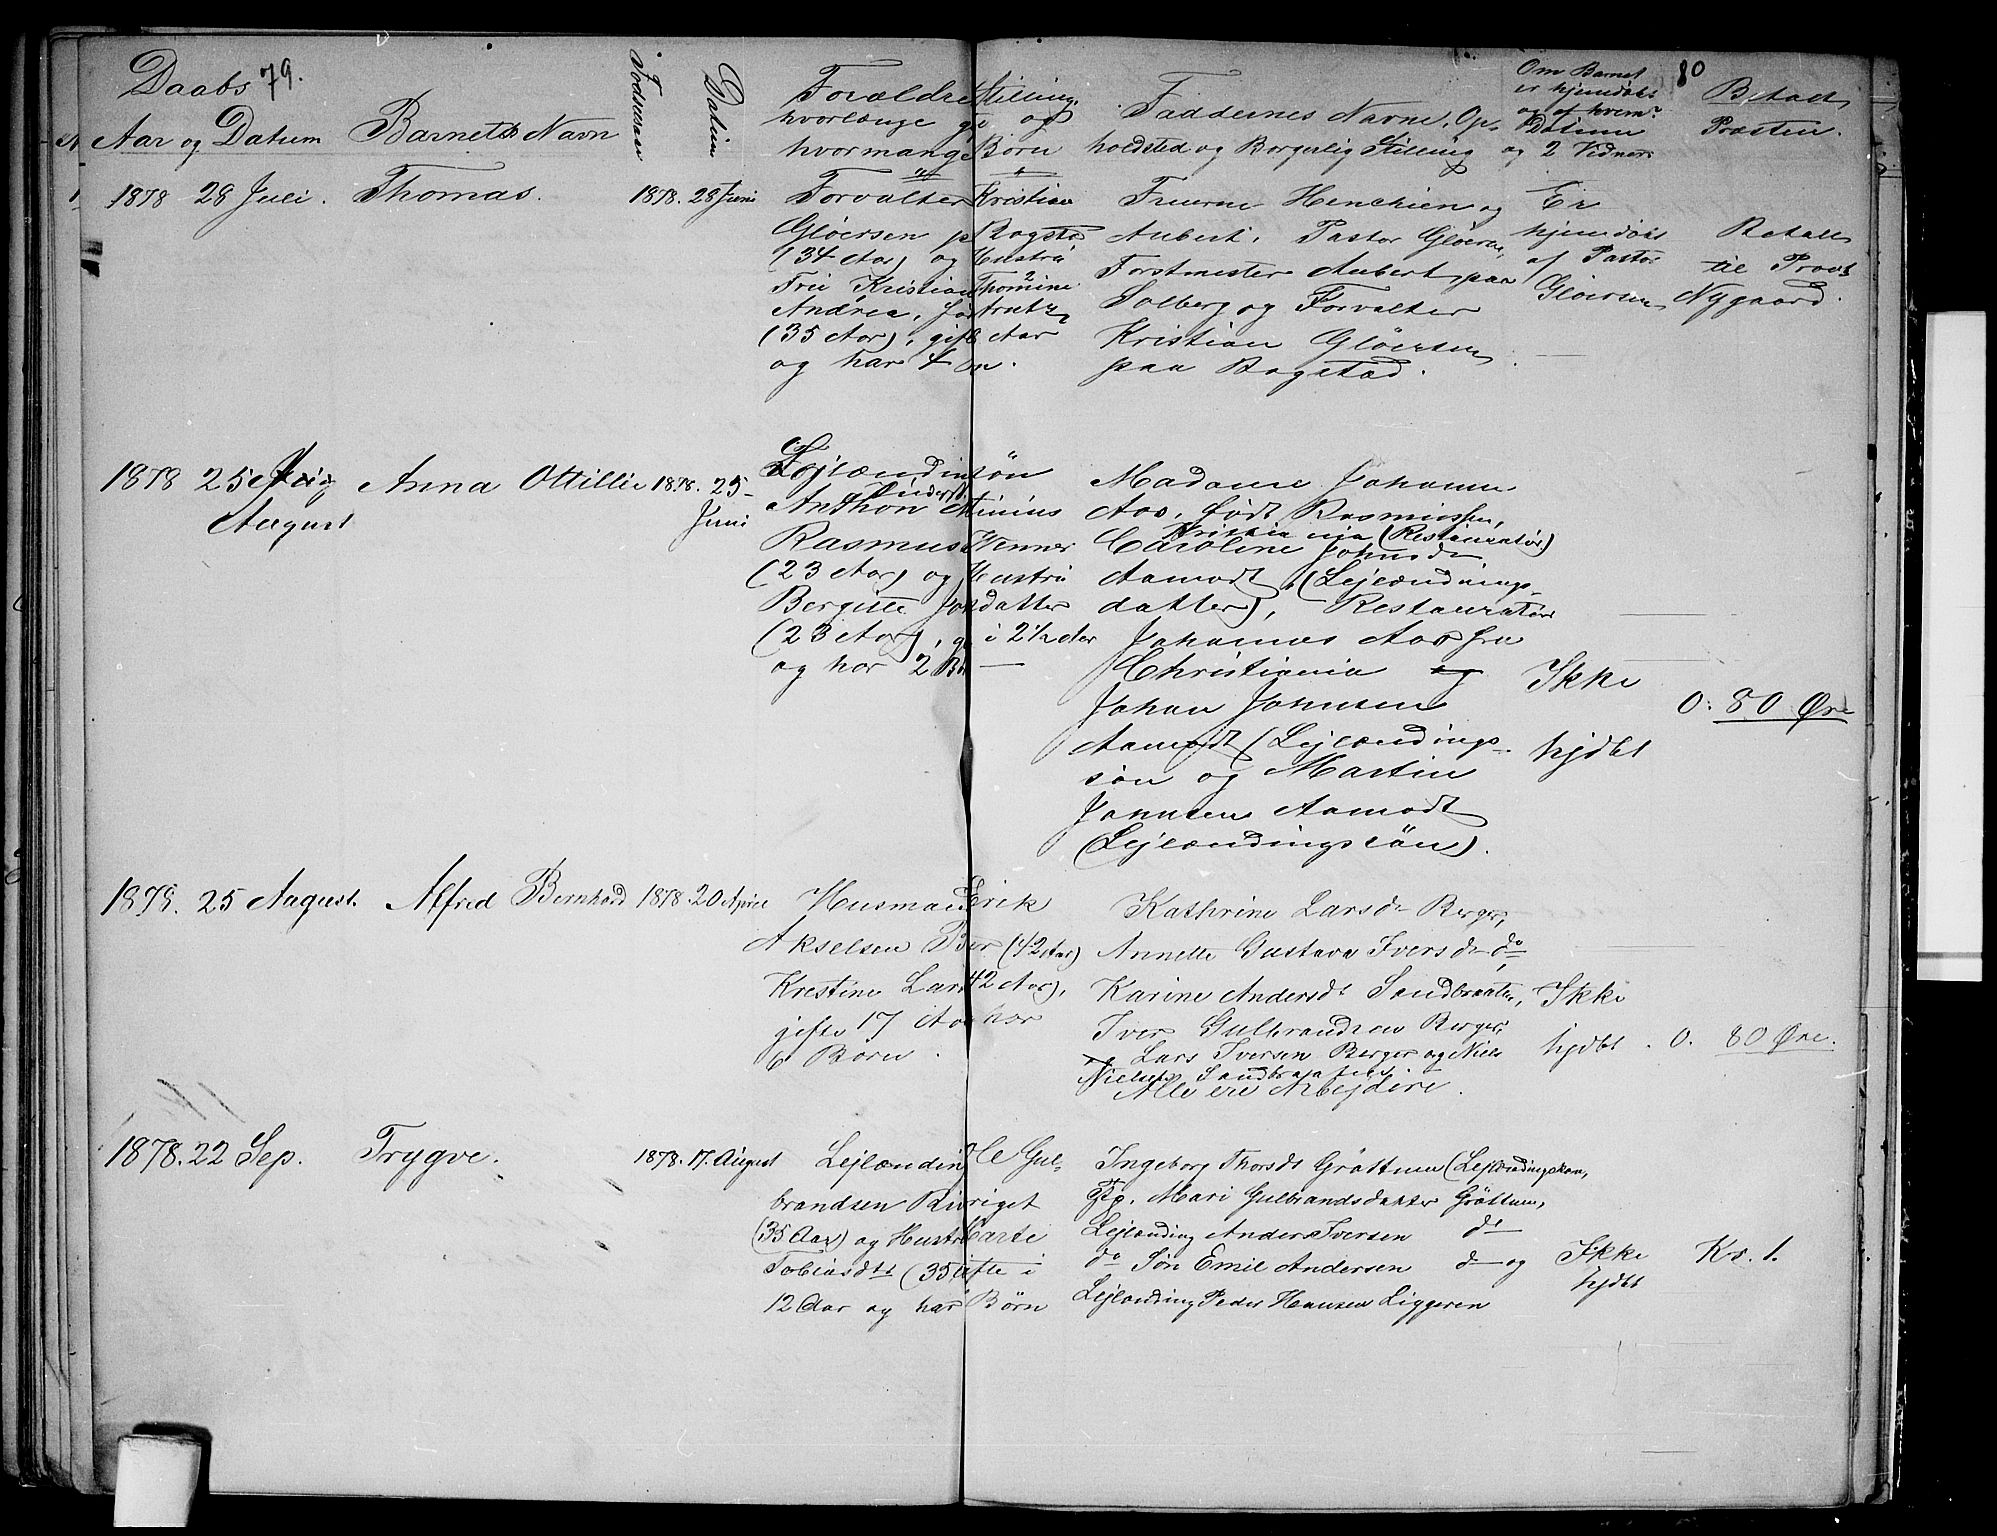 79.
80
Daabs
Aar og Datum
Barnets Navn
Fødselsaar
Datum
Forældre Stilling,
hvorlænge g og
hvormange Børn
Faddernes Navne, Op-
holdsted og Borgerlig Stilling
Om Barnet
er hjemdøbt
og af hvem?
Datum
og 2 Vidner
Betalt
Præsten.
1878 28 Juli. Thomas. 1878. 28 Juni
Forvalter Kristian
Gløersen p Bogstad
(34 Aar) og Hustru
Fru Kristian Thomine
Andrea, fø
(35 Aar), gift Aar
og har 4 n.
Fruerne Henchien og
Aubert, Pastor Gløersen,
Forstmester Aubert paa
Solberg og Forvalter
Kristian Gløersen
paa Bogstad.
Er
hjemdøbt
af Pastor
Gløersen
Betalt
til Provst
Nygaard.
1878 25 Aug Anna Ottillie 1878. 25-
August
Juni
Lejlændin søn
Anthon Minius
Rasmus Wenner
(23 Aar) og Hustru
Bergitte Johsdatter
(23 Aar), g i 2½ Aar
og har 2 Bø
Madame Johanne
Aas, født Rasmussen,
Kristiania (Restauratør)
Caroline Johnsd-
Aamodt (Lejlændings-
datter), Restauratør
Johannes Aas fra
Christiania og
Johan Johnsen
Aamodt (Lejlændings-
søn og Martin
Johnsen Aamodt
(Lejlændingssøn).
Ikke
hjdbt
0: 80 Øre
1878. 25 August. Alfred Bernhard 1878. 20 April
Husman Erik
Akselsen Ber (42 Aar)
Krestine Lars 42 Aar),
gifte 17 Aa har
6 Børn.
Kathrine Larsd- Berger,
Annette Gustava Iversd- do,
Karine Andersdt Sandbraaten,
Iver Gulbrandsen Berger,
Lars Iversen Berger og Niels
Nielsen Sandbraaten
Alle ere Arbejdere.
Ikke
hjdbt.
0. 80 Øre.
1878. 22 Sep. Trygve. 1878. 17. August
Lejlænding Ole Gul-
brandsen Rii riget
(35 Aar) og Hustru Marte
Tobiasdtt (35 gifte i
12 Aar og har Børn
Ingeborg Thorsdt Grøttum (Lejlændingskone,
Pg. Mari Gulbrandsdatter Grøttum,
Lejlænding Anders Iversen do
do Søn Emil Andersen do og
Lejlænding Peder Hansen Liggeren
Ikke
hjdbt
Kr. 1.